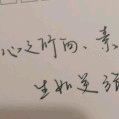 心之所向、素
生如逆旅